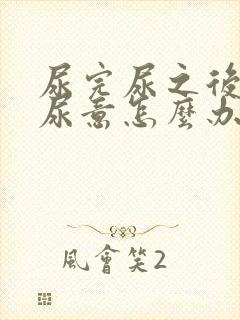 尿完尿之後
尿意怎麼办
風會笑2